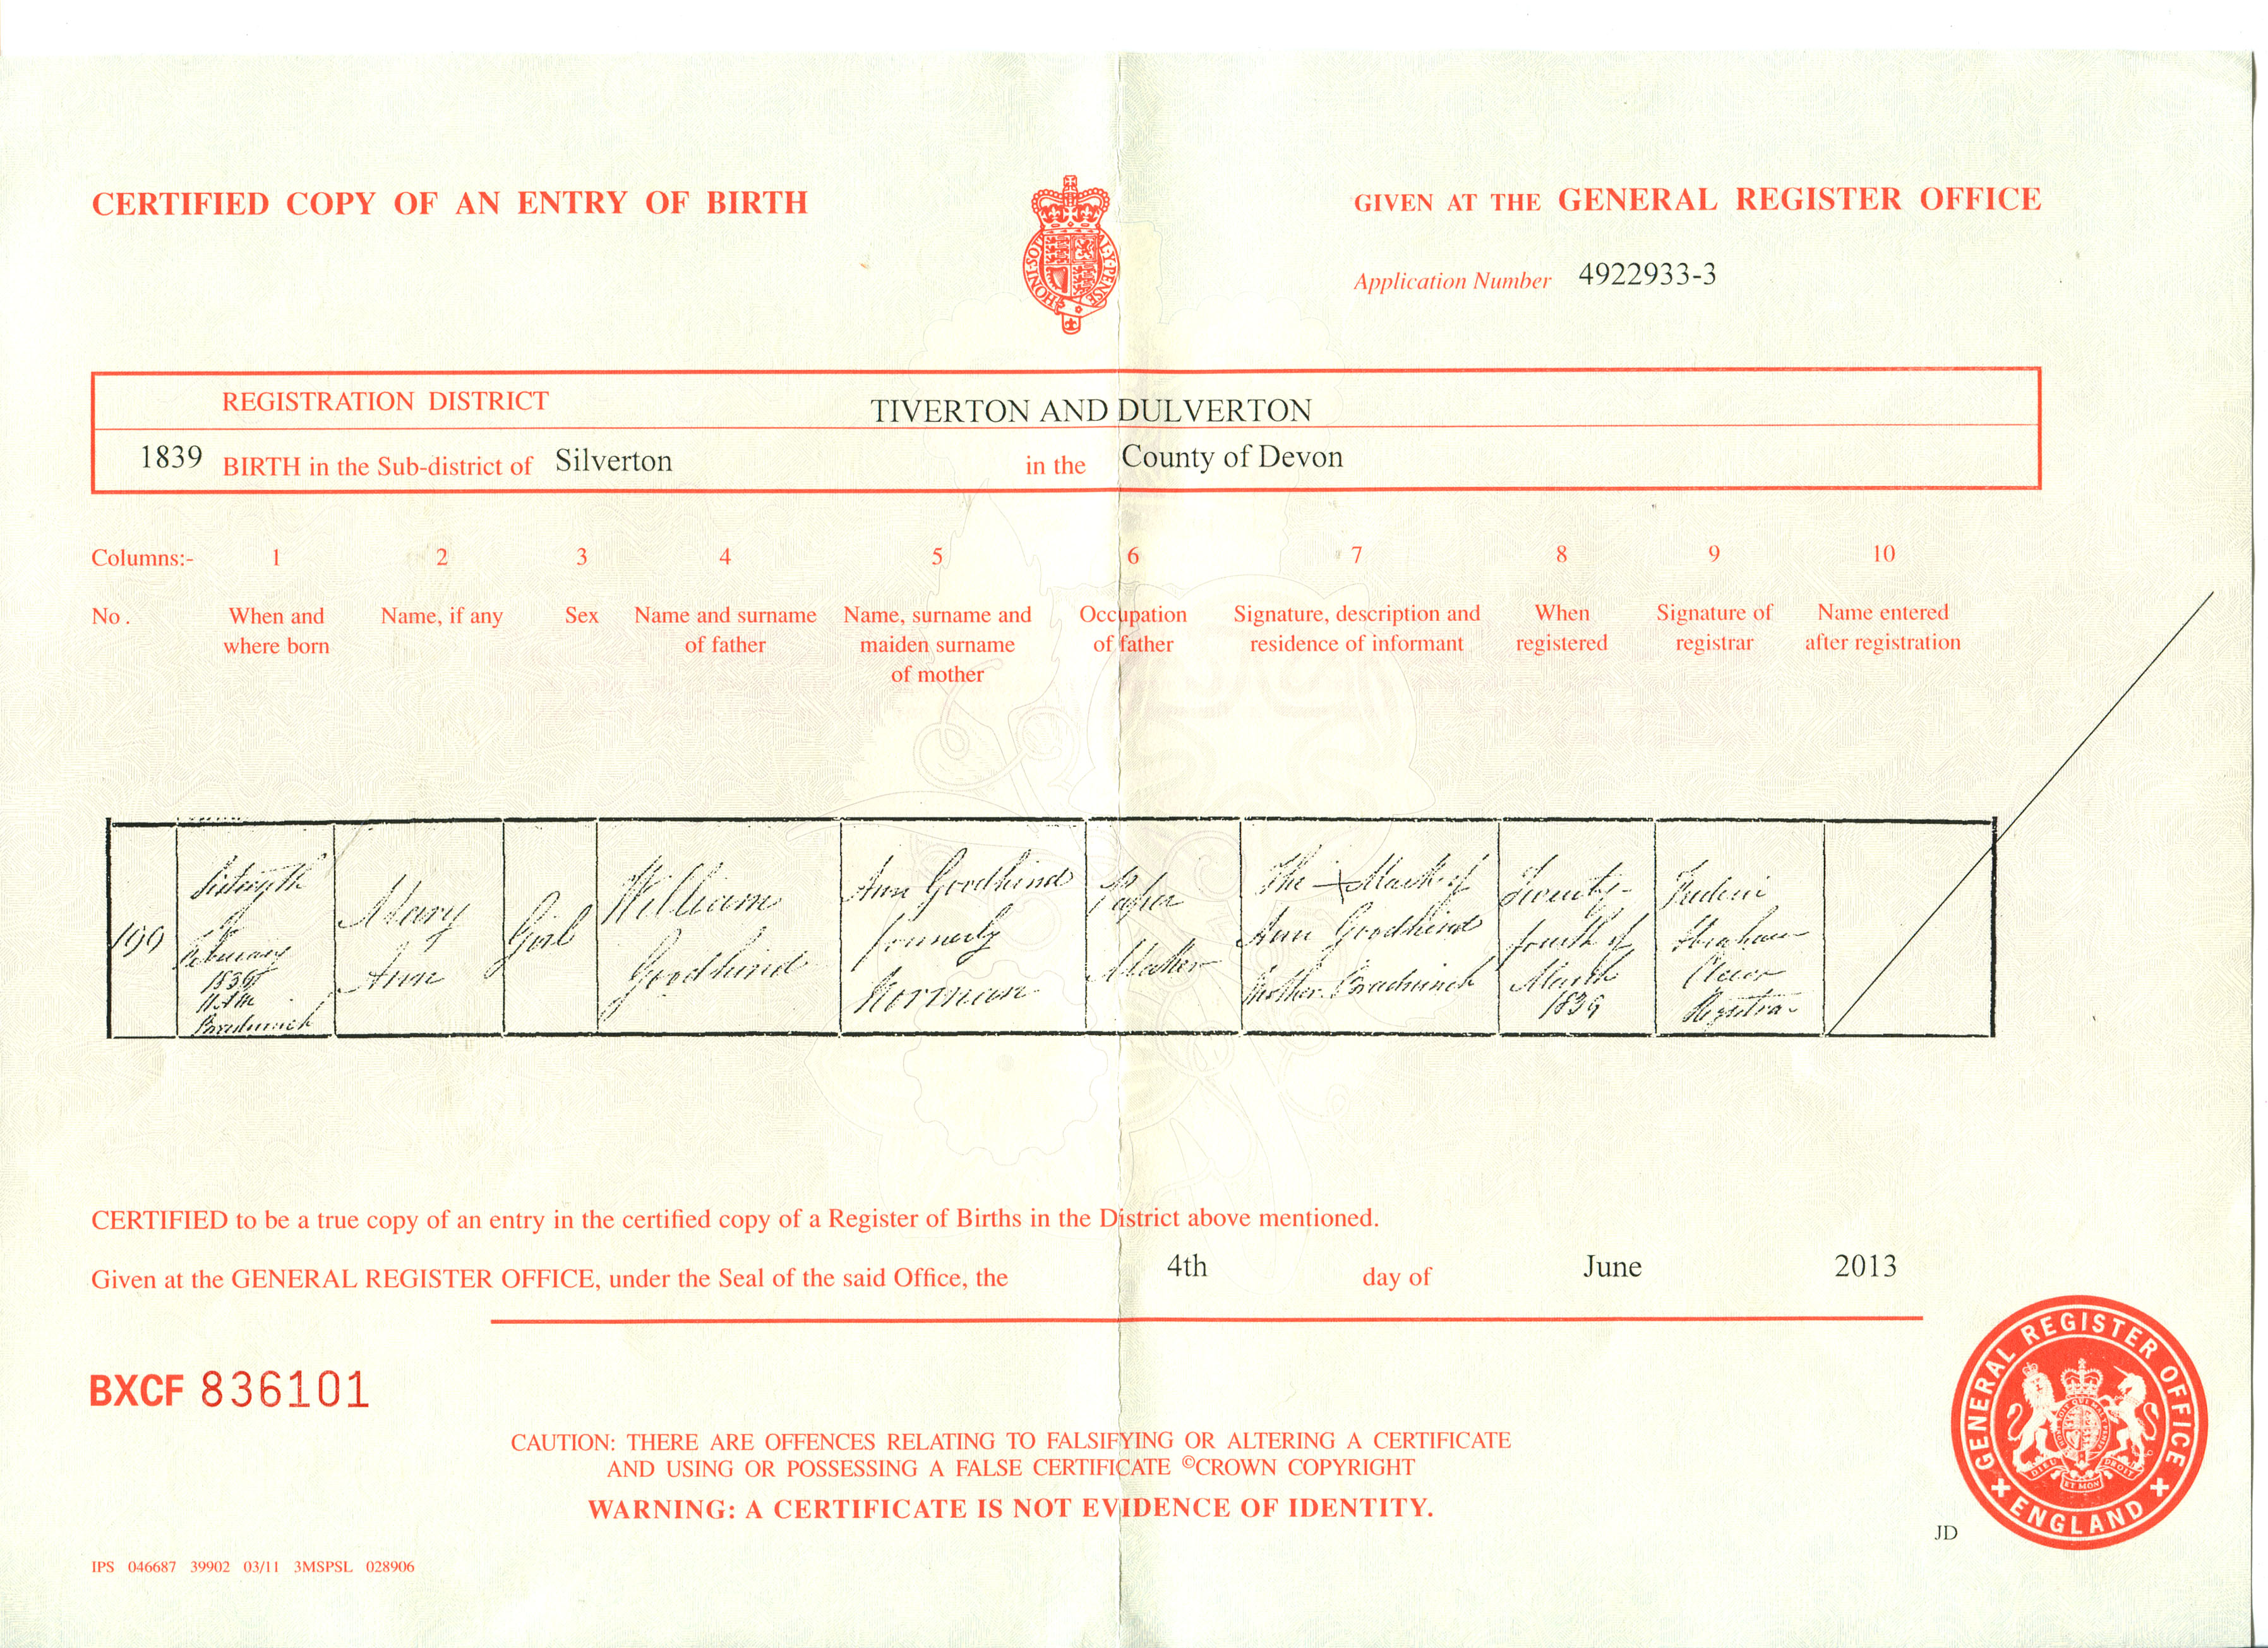 CERTIFIED COPY OF AN ENTRY OF BIRTH
GIVEN AT THE GENERAL REGISTER OFFICE
HONI·SOI AL·Y·PENSE
Application Number 4922933-3
REGISTRATION DISTRICT TIVERTON AND DULVERTON
1839 BIRTH in the Sub-district of Silverton in the County of Devon
Columns:- 1 2 3 4 5 6 7 8 9 10
No. When and where born
Name, if any
Sex
Name and surname of father
Name, surname and maiden surname of mother
Occupation of father
Signature, description and residence of informant
When registered
Signature of registrar
Name entered after registration
199
February
1839
Bradninch
Mary
Ann
Girl
William
Goodhind
Ann Goodhind
formerly
Norman
Paper
Maker
The Mark of
Ann Goodhind
Mother. Bradninch
Twenty-
fourth of
March
1839
Registrar
CERTIFIED to be a true copy of an entry in the certified copy of a Register of Births in the District above mentioned.
Given at the GENERAL REGISTER OFFICE, under the Seal of the said Office, the 4th day of June 2013
BXCF 836101
CAUTION: THERE ARE OFFENCES RELATING TO FALSIFYING OR ALTERING A CERTIFICATE
AND USING OR POSSESSING A FALSE CERTIFICATE ©CROWN COPYRIGHT
WARNING: A CERTIFICATE IS NOT EVIDENCE OF IDENTITY.
GENERAL REGISTER OFFICE
ENGLAND
DIEU ET MON DROIT
JD
IPS 046687 39902 03/11 3MSPSL 028906